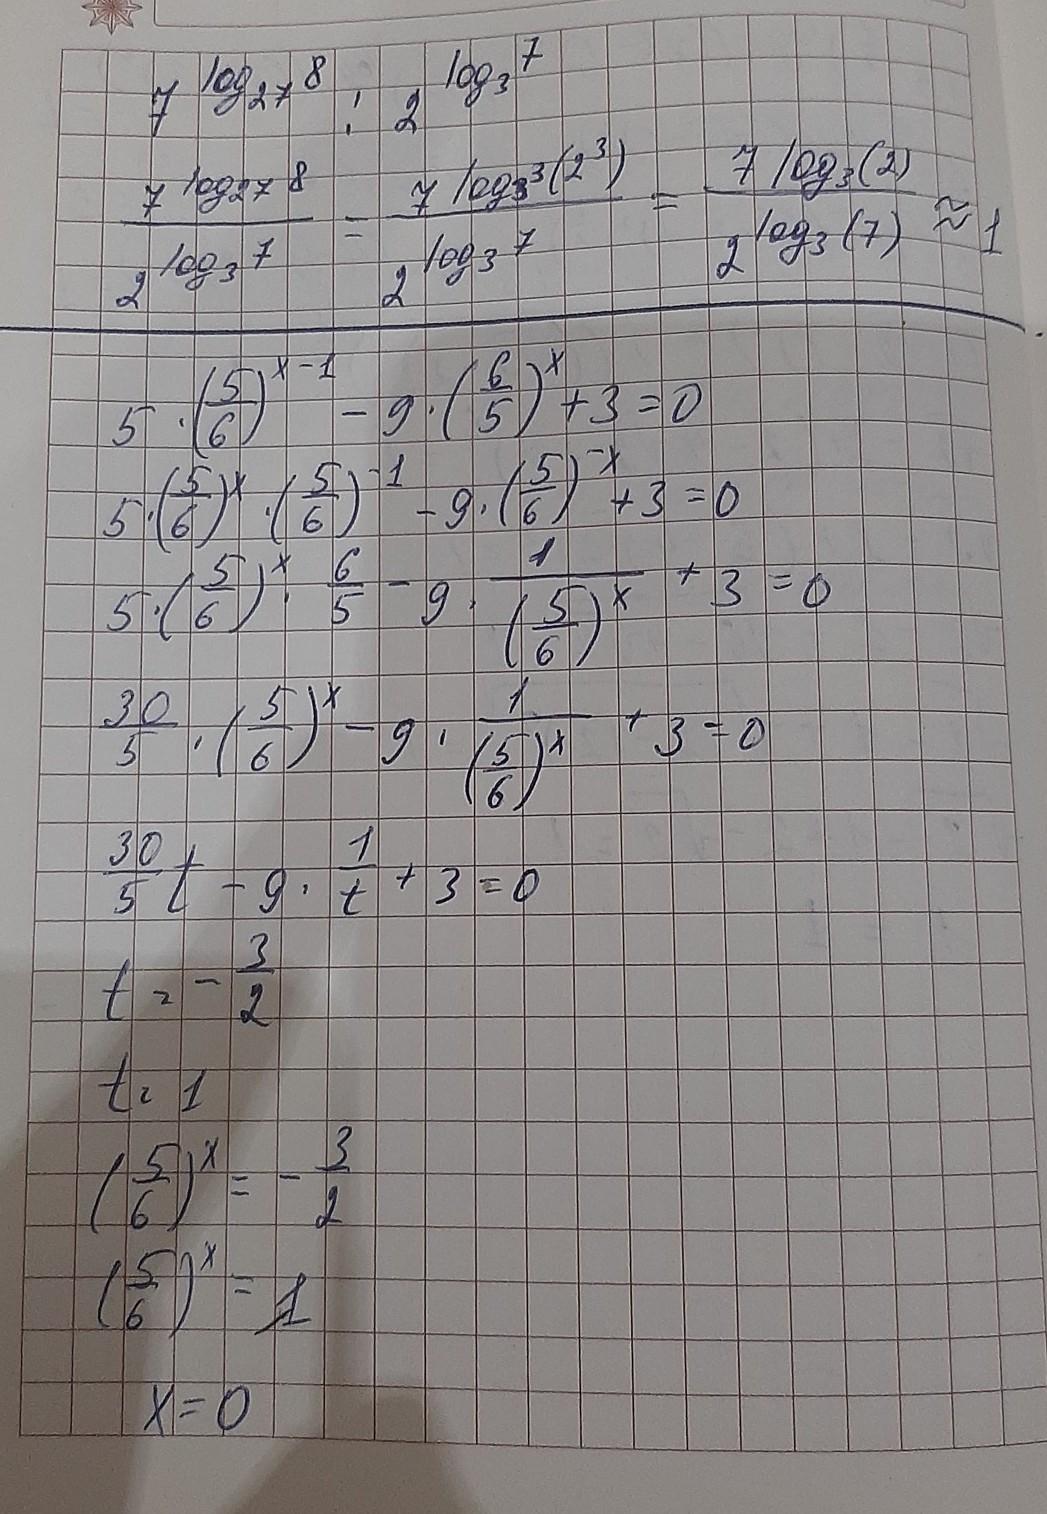 7^{log_{27} 8} : 2^{log_3 7}
\frac{7^{log_{27} 8}}{2^{log_3 7}} = \frac{7^{log_{3^3}(2^3)}}{2^{log_3 7}} = \frac{7^{log_3(2)}}{2^{log_3(7)}} ≈ 1
5 · (\frac{5}{6})^{x-1} - 9 · (\frac{6}{5})^x + 3 = 0
5 · (\frac{5}{6})^x · (\frac{5}{6})^{-1} - 9 · (\frac{5}{6})^{-x} + 3 = 0
5 · (\frac{5}{6})^x · \frac{6}{5} - 9 · \frac{1}{(\frac{5}{6})^x} + 3 = 0
\frac{30}{5} · (\frac{5}{6})^x - 9 · \frac{1}{(\frac{5}{6})^x} + 3 = 0
\frac{30}{5} t - 9 · \frac{1}{t} + 3 = 0
t = - \frac{3}{2}
t = 1
(\frac{5}{6})^x = - \frac{3}{2}
(\frac{5}{6})^x = 1
x = 0